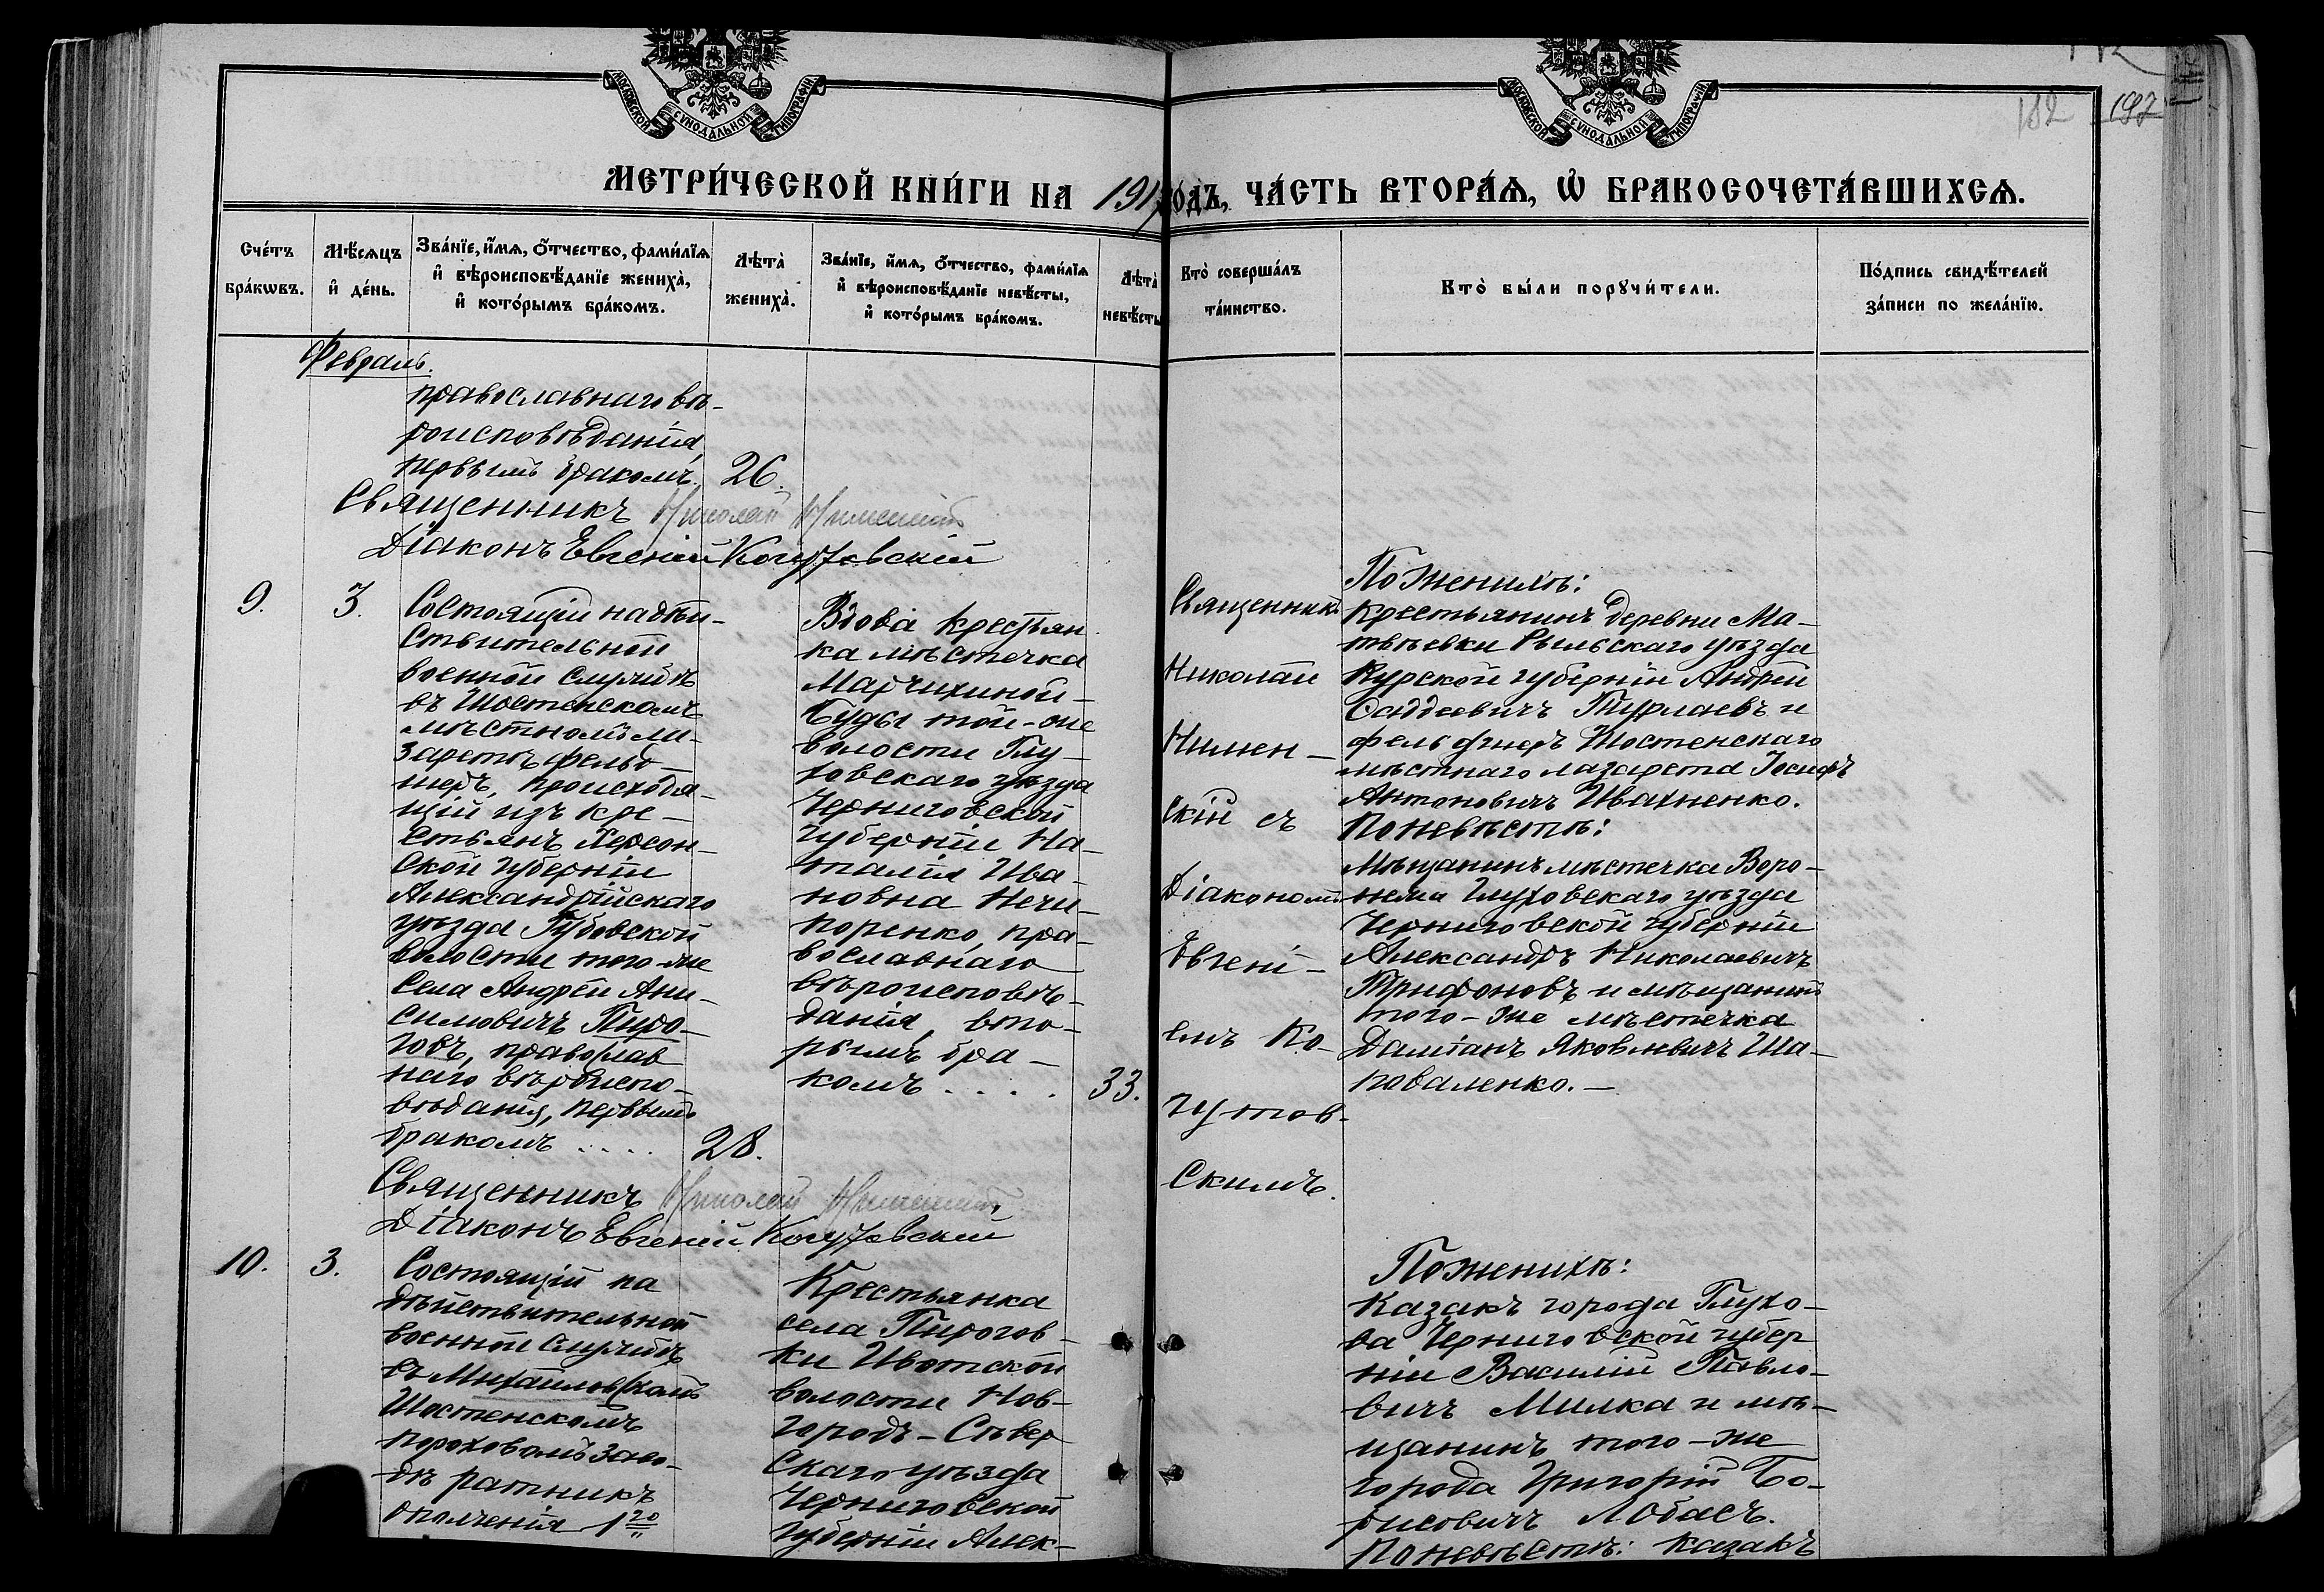 МОСКОВСКОЙ СѴНОДАЛЬНОЙ ТИПОГРАФІИ
МОСКОВСКОЙ СѴНОДАЛЬНОЙ ТИПОГРАФІИ
182 197
МЕТРИ́ЧЕСКОЙ КНИ́ГИ НА 191 ГО́ДЪ, ЧА́СТЬ ВТОРА́Ѧ, Ѡ҆ БРАКОСОЧЕТА́ВШИХСѦ.
Сче́тъ бра́кѡвъ.
Мѣ́сѧцъ и҆ де́нь.
Зва́нїе, и҆́мѧ, ѻ҆́тчество, фами́лїѧ
и҆ вѣроисповѣ́данїе жениха̀,
и҆ кото́рымъ бра́комъ.
Лѣта̀ жениха̀.
Зва́нїе, и҆́мѧ, ѻ҆́тчество, фами́лїѧ
и҆ вѣроисповѣ́данїе невѣ́сты,
и҆ кото́рымъ бра́комъ.
Лѣта̀ невѣ́сты
Кто̀ соверша́лъ та́инство.
Кто̀ бы́ли порꙋчи́тели.
По́дпись свидѣ́телей
за́писи по жела́нїю.
Февраль.
православнаго вѣ-
роисповѣданія,
первымъ бракомъ. 26.
Священникъ Николай
Діаконъ Евгеній Когутовскій
9. 3.
Состоящій на дѣй-
ствительной
военной службѣ
въ Шостенскомъ
мѣстномъ ла-
заретѣ фельд-
шеръ, происходя-
щій изъ кре-
стьянъ Херсон-
ской губерніи
Александрійскаго
уѣзда Губовской
волости того-же
села Андрей Ани-
симовичъ Пиро-
говъ, православ
наго вѣроиспо-
вѣданія, первымъ
бракомъ .... 28.
Вдова крестьян
ка мѣстечка
Марчихиной-
Буды той-же
волости Глу-
ховскаго уѣзда
Черниговской
губерніи На-
талія Ива-
новна Ничи-
поренко, пра-
вославнаго
вѣроисповѣ-
данія, вто-
рымъ бра-
комъ .... 33.
Священникъ
Николай
Нимен-
скій съ
Діакономъ
Евгені-
емъ Ко-
гутов-
скимъ.
По женихѣ:
крестьянинъ деревни Ма-
твѣевки Рыльскаго уѣзда
Курской губерніи Андрей
Фаддеевичъ Турлаевъ и
фельдшеръ Шостенскаго
мѣстнаго лазарета Іосифъ
Антоновичъ Ивахненко.
По невѣстѣ:
мѣщанинъ мѣстечка Воро-
нежа Глуховскаго уѣзда
Черниговской губерніи
Александръ Николаевичъ
Трифоновъ и мѣщанинъ
того-же мѣстечка
Даміанъ Яковлевичъ Ша-
поваленко.-
Священникъ Николай
Діаконъ Евгеній Когутовскій
10. 3.
Состоящій на
дѣйствительной
военной службѣ
въ Михайловскомъ
Шостенскомъ
пороховомъ заво-
дѣ ратникъ
ополченія 1го
Крестьянка
села Пирогов-
ки Ивотской
волости Нов-
городъ-Сѣвер
скаго уѣзда
Черниговской
губерніи Алек-
По женихѣ:
Казакъ города Глухо-
ва Черниговской губер
ніи Василій Павло-
вичъ Милка и мѣ-
щанинъ того-же
города Григорій Бо-
рисовичъ Лобасъ.
По невѣстѣ: казакъ